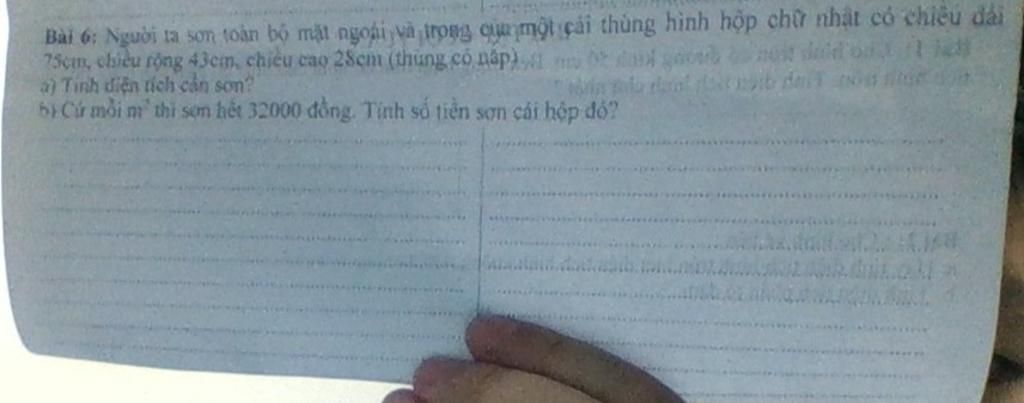 Bài 6: Người ta sơn toàn bộ mặt ngoài và trong của một cái thùng hình hộp chữ nhật có chiều dài
75cm, chiều rộng 43cm, chiều cao 28cm (thùng có nắp)
a) Tính diện tích cần sơn?
b) Cứ mỗi m² thì sơn hết 32000 đồng. Tính số tiền sơn cái hộp đó?